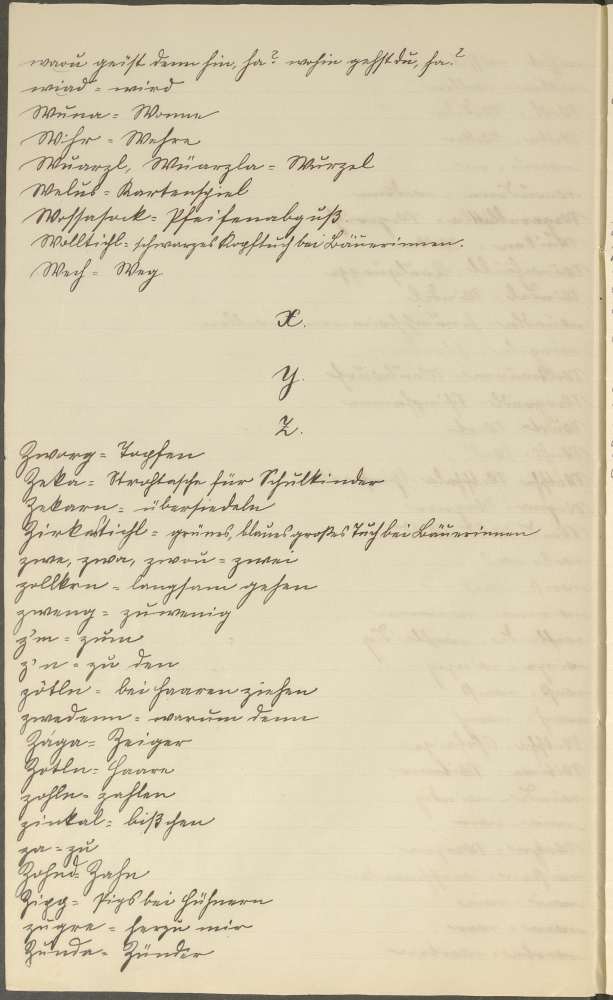 waou geist denn hin, ha? wohin gehst du, ha?
wiad = wird
Wuna = Wonne
Wihr = Wehre
Wuarzl, Wüarzla = Wurzel
Welus = Kartenspiel
Wossasock = Pfeifenabguß
Wolltichl = schwarzes Kopftuch bei Bäuerinnen.
Wech = Weg
X.
Y.
Z.
Zworg = Topfen
Zeka = Strohtasche für Schulkinder
Zekarn = übersiedeln
Zirkastichl = grünes, blaues großes Tuch bei Bäuerinnen
zwe, zwa, zwou = zwei
zollkrn = langsam gehen
zweng = zuwenig
z'm = zum
z'n = zu den
zötln = bei Haaren ziehen
zwedenn = warum denn
Zaga = Zeiger
Zotln = Haare
zohln = zahlen
zinkal = bißchen
za = zu
Zohnd = Zahn
Zipg = Pips bei Hühnern
zugre = herzu mir
Zunda = Zünder